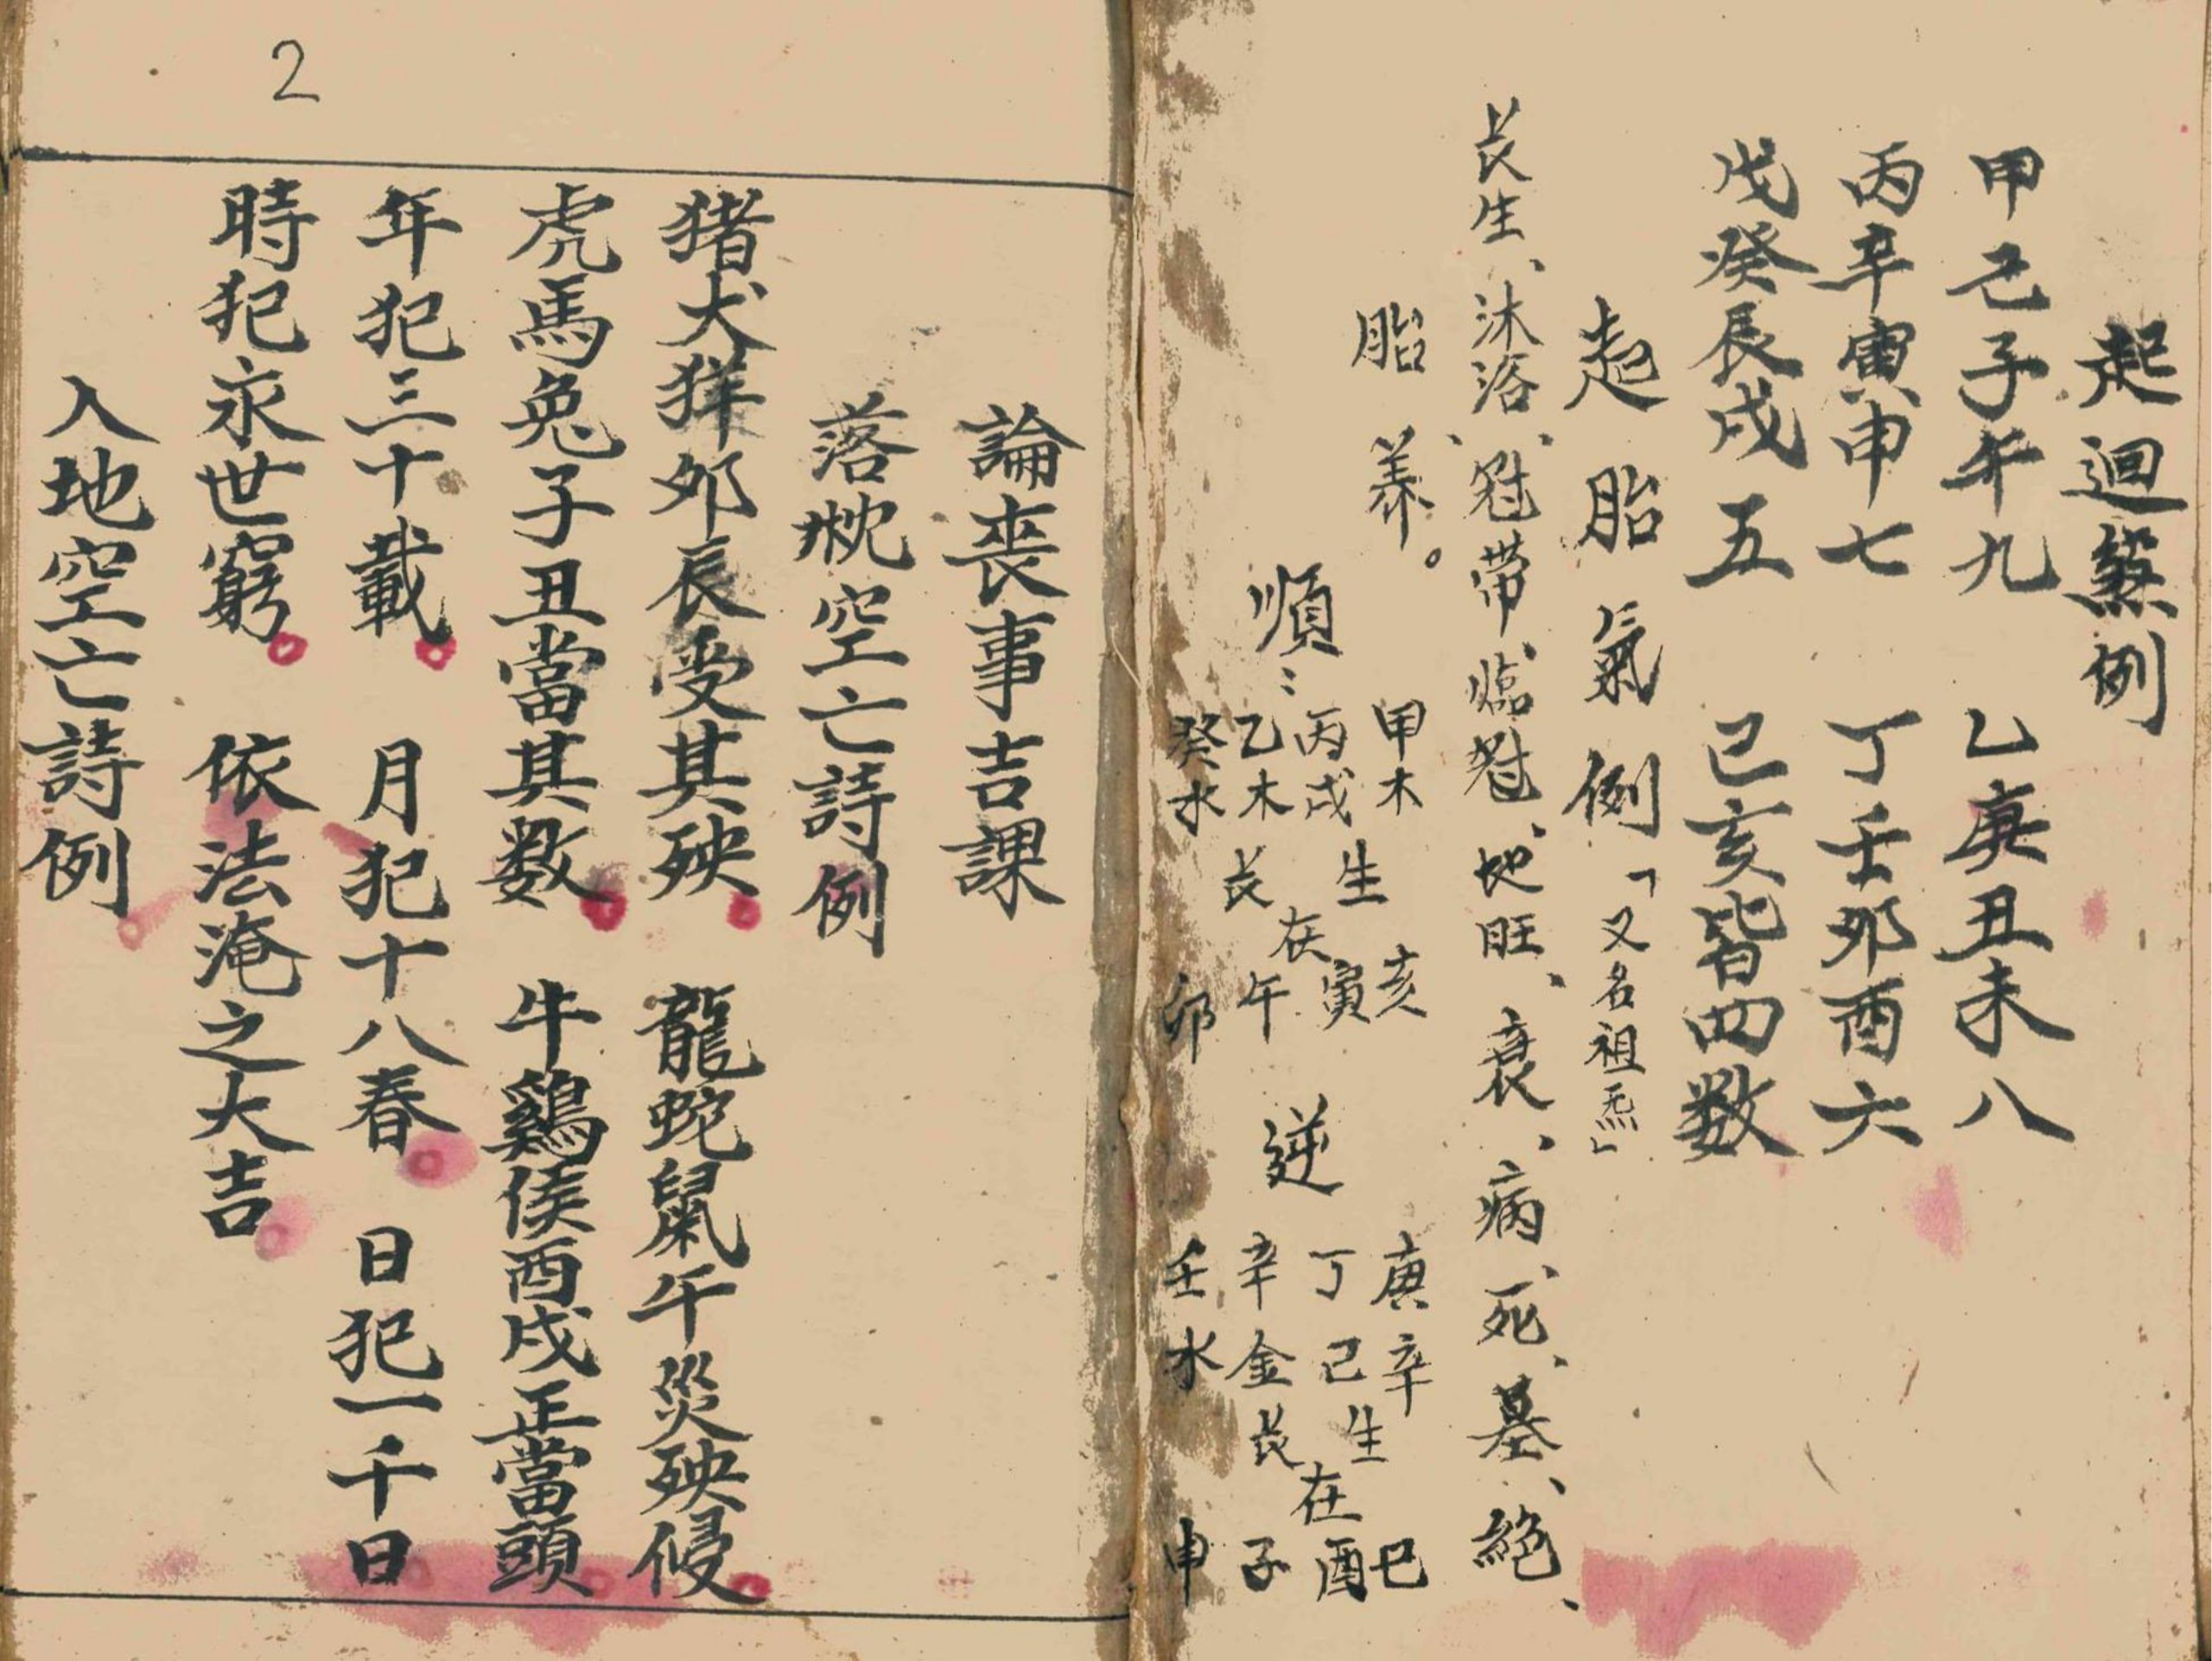 起迴煞例
甲己子午九 乙庚丑未八
丙辛寅申七 丁壬卯酉六
戊癸辰戌五 巳亥皆四数
起胎氣例「又名祖炁」
長生、沐浴、冠带、臨冠、地旺、衰、病、死、墓、絕、
胎 养。
順：
甲木 生 亥
丙戊 在 寅
乙木 長 午
癸水 卯
逆
庚辛 生 巳
丁己 在 酉
辛金 長 子
壬水 申
論喪事吉課
落枕空亡詩例
猪犬羊卯辰受其殃 龍蛇鼠午災殃侵
虎馬兔子丑當其数 牛鷄侯酉戌正當頭
年犯三十載 月犯十八春 日犯一千日
時犯永世窮 依法淹之大吉
入地空亡詩例
2